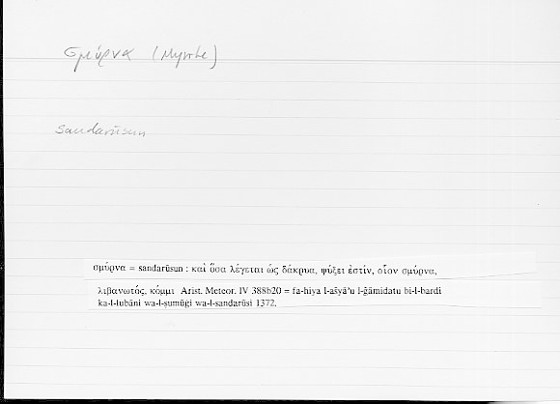 σμύρνα (Myrrhe)
sandarūsun
σμύρνα = sandarūsun : καὶ ὅσα λέγεται ὡς δάκρυα, ψύξει ἐστίν, οἷον σμύρνα,
λιβανωτός, κόμμι Arist. Meteor. IV 388b20 = fa-hiya l-ašyāʾu l-ǧāmidatu bi-l-bardi
ka-l-lubāni wa-l-ṣumūġi wa-l-sandarūsi 1372.